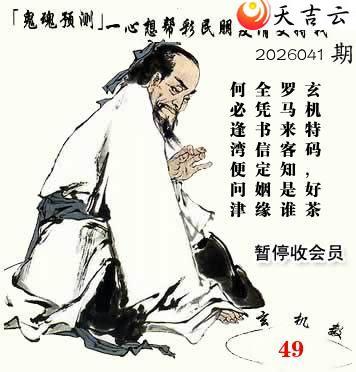 「鬼魂预测」一心想帮彩民朋
天吉云
2026041 期
玄机特码,好茶
罗马来客知是谁
全凭书信定姻缘
何必逢湾便问津
暂停收会员
玄机数
49